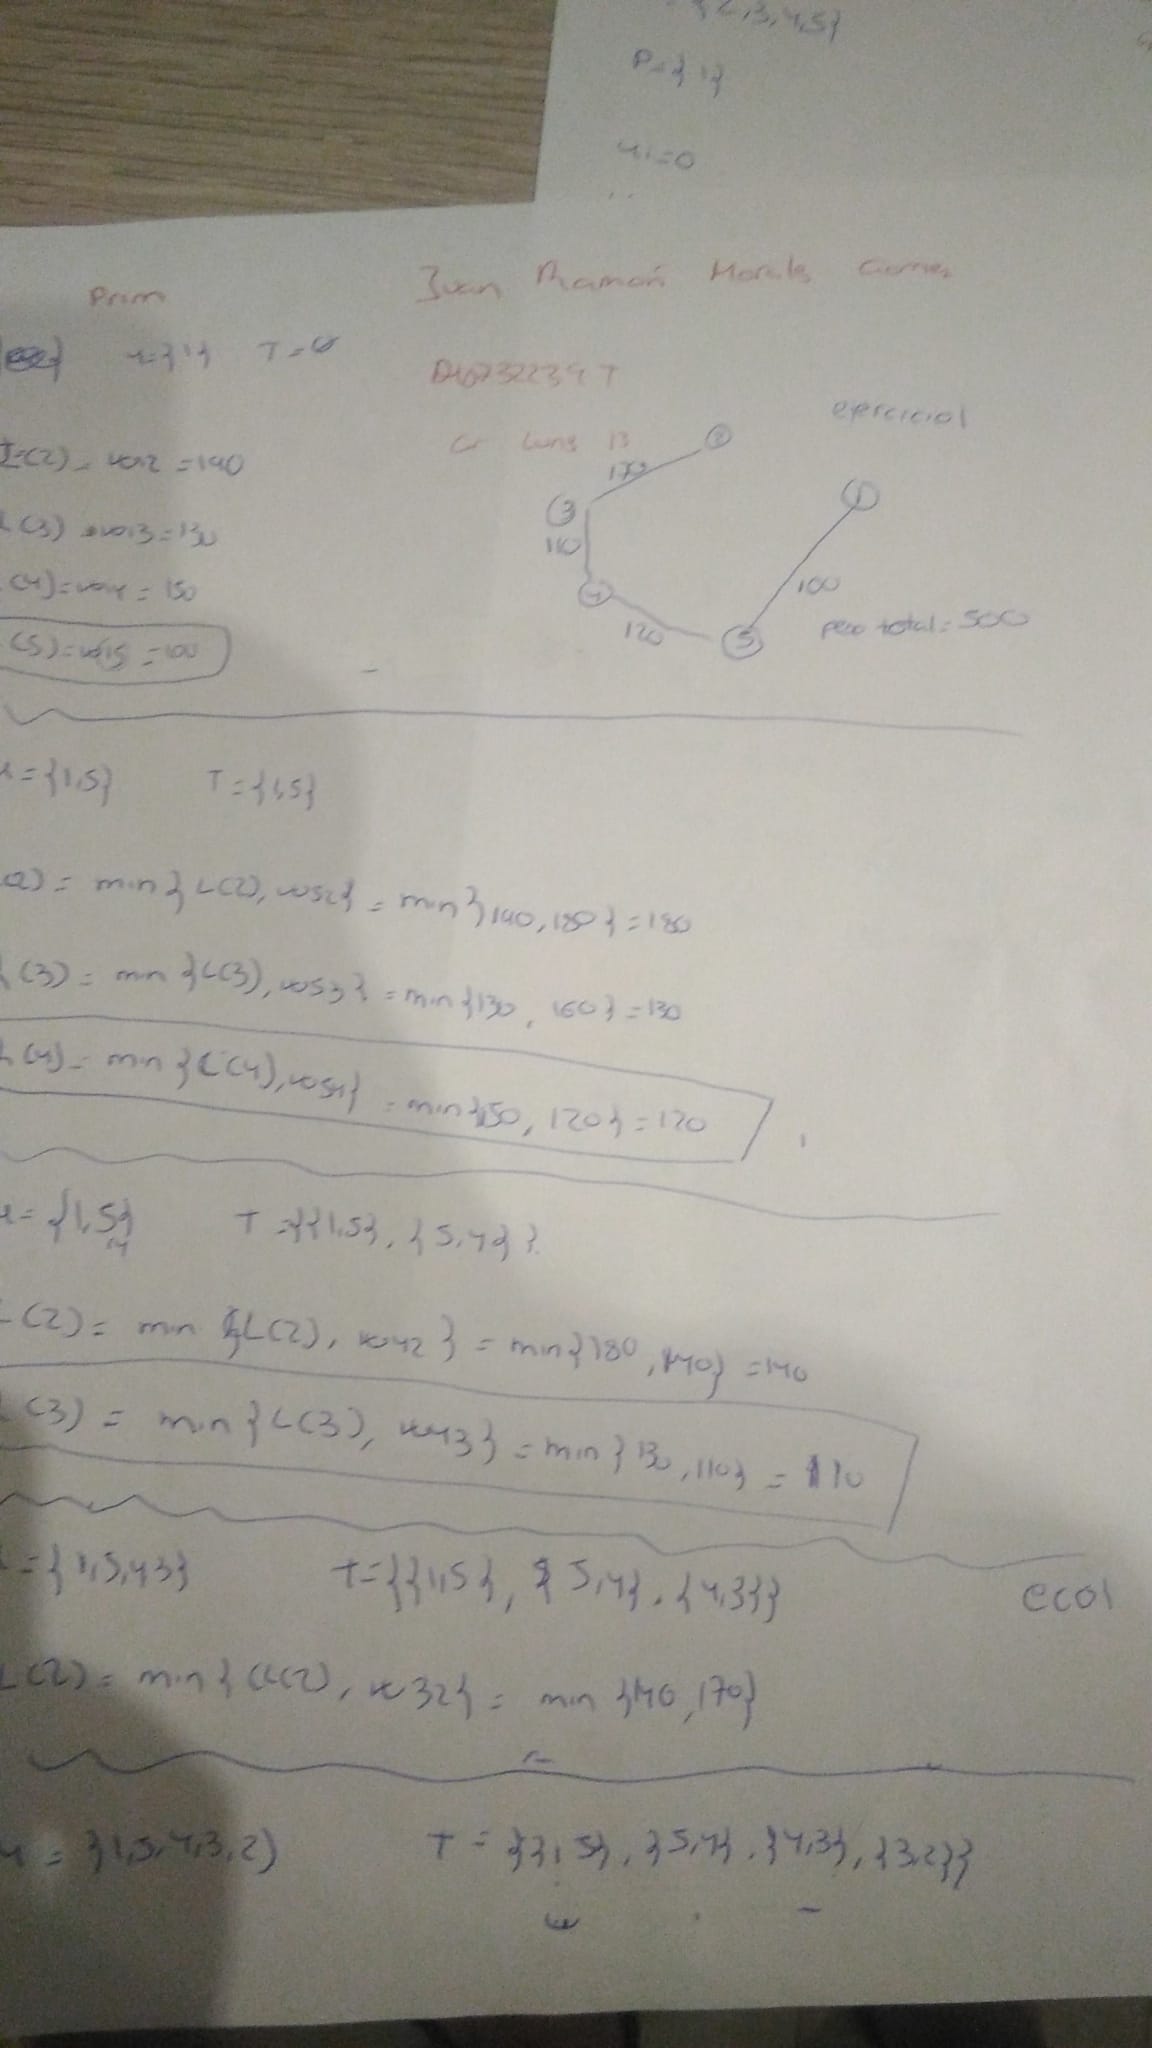 {2,3,4,5}
P={1}
u1=0
Prim
Juan Ramón Morales Gomes
u={1} T=∅
L(2)=w12=190
ejercicio1
Gr Lunes 13
2
170
L(3)=w13=130
3
1
110
(4)=w14=150
4
100
120
5
peso total=500
(5)=w15=100
u={1,5} T={1,5}
2)= min{L(2),w52}=min{190,180}=180
L(3)= min{L(3),w53}=min{130, 160}=130
L(4)= min{L(4),w54}=min{150, 120}=120
u={1,5}
4
T={{1,5}, {5,4}}
L(2)= min{L(2), w42}=min{180,140}=140
L(3)= min{L(3), w43}=min{130,110}=110
={1,5,4,3} T={{1,5}, {5,4}, {4,3}}
eco1
L(2)= min{L(2), w32}= min{140,170}
u={1,5,4,3,2} T={{1,5}, {5,4}, {4,3}, {3,2}}